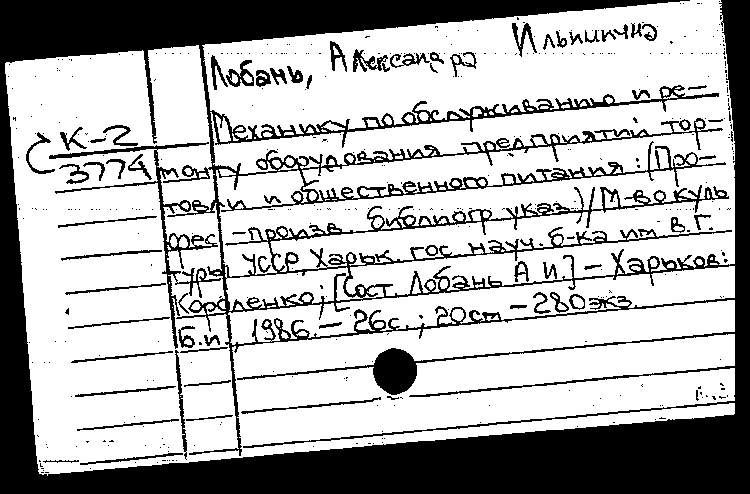 Лобань, Александра Ильинична.
Механику по обслуживанию и ре-
К-2
3774
монту оборудования предприятий тор-
товли и общественного питания: (Про-
фес.-произв. библиогр. указ.)/М-во куль
туры УССР, Харьк. гос. науч. б-ка им. В.Г.
Короленко; [Сост. Лобань А.И.] - Харьков:
Б.и., 1986. - 26с.; 20см. - 280экз.